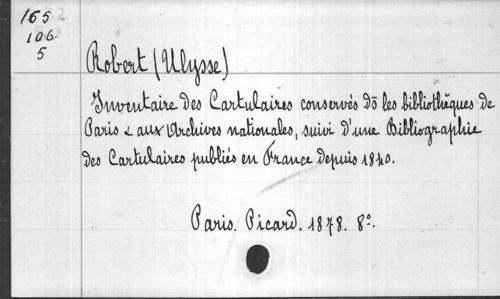 165
106
5
Robert (Ulysse)
Inventaire des Cartulaires conservés dō les bibliothèques de
Paris & aux Archives nationales, suivi d'une Bibliographie
des Cartulaires publiés en France depuis 1840.
Paris. Picard. 1878. 8°.